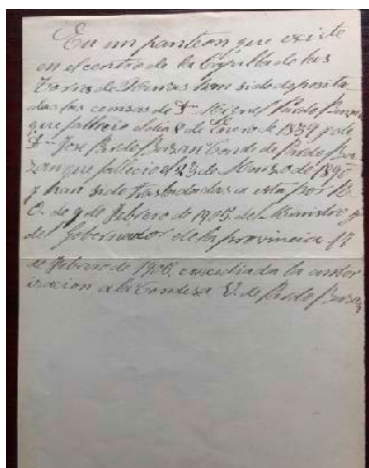 En un panteon que existe
en el centro de la Capilla de las
Torres de Meirás han sido deposita
das las cenizas de Dn Miguel Pardo Bazan
que fallecio el dia 8 de Enero de 1839 y de
Dn José Pardo Bazan Conde de Pardo Ba
zan que fallecio el 23 de Marzo de 1890
y han sido trasladadas a esta por R.
O. de 9 de febrero de del Ministro y
del Gobernador de la provincia
de febrero de concediada la autor
izacion a la Condesa V. de Pardo Bazan